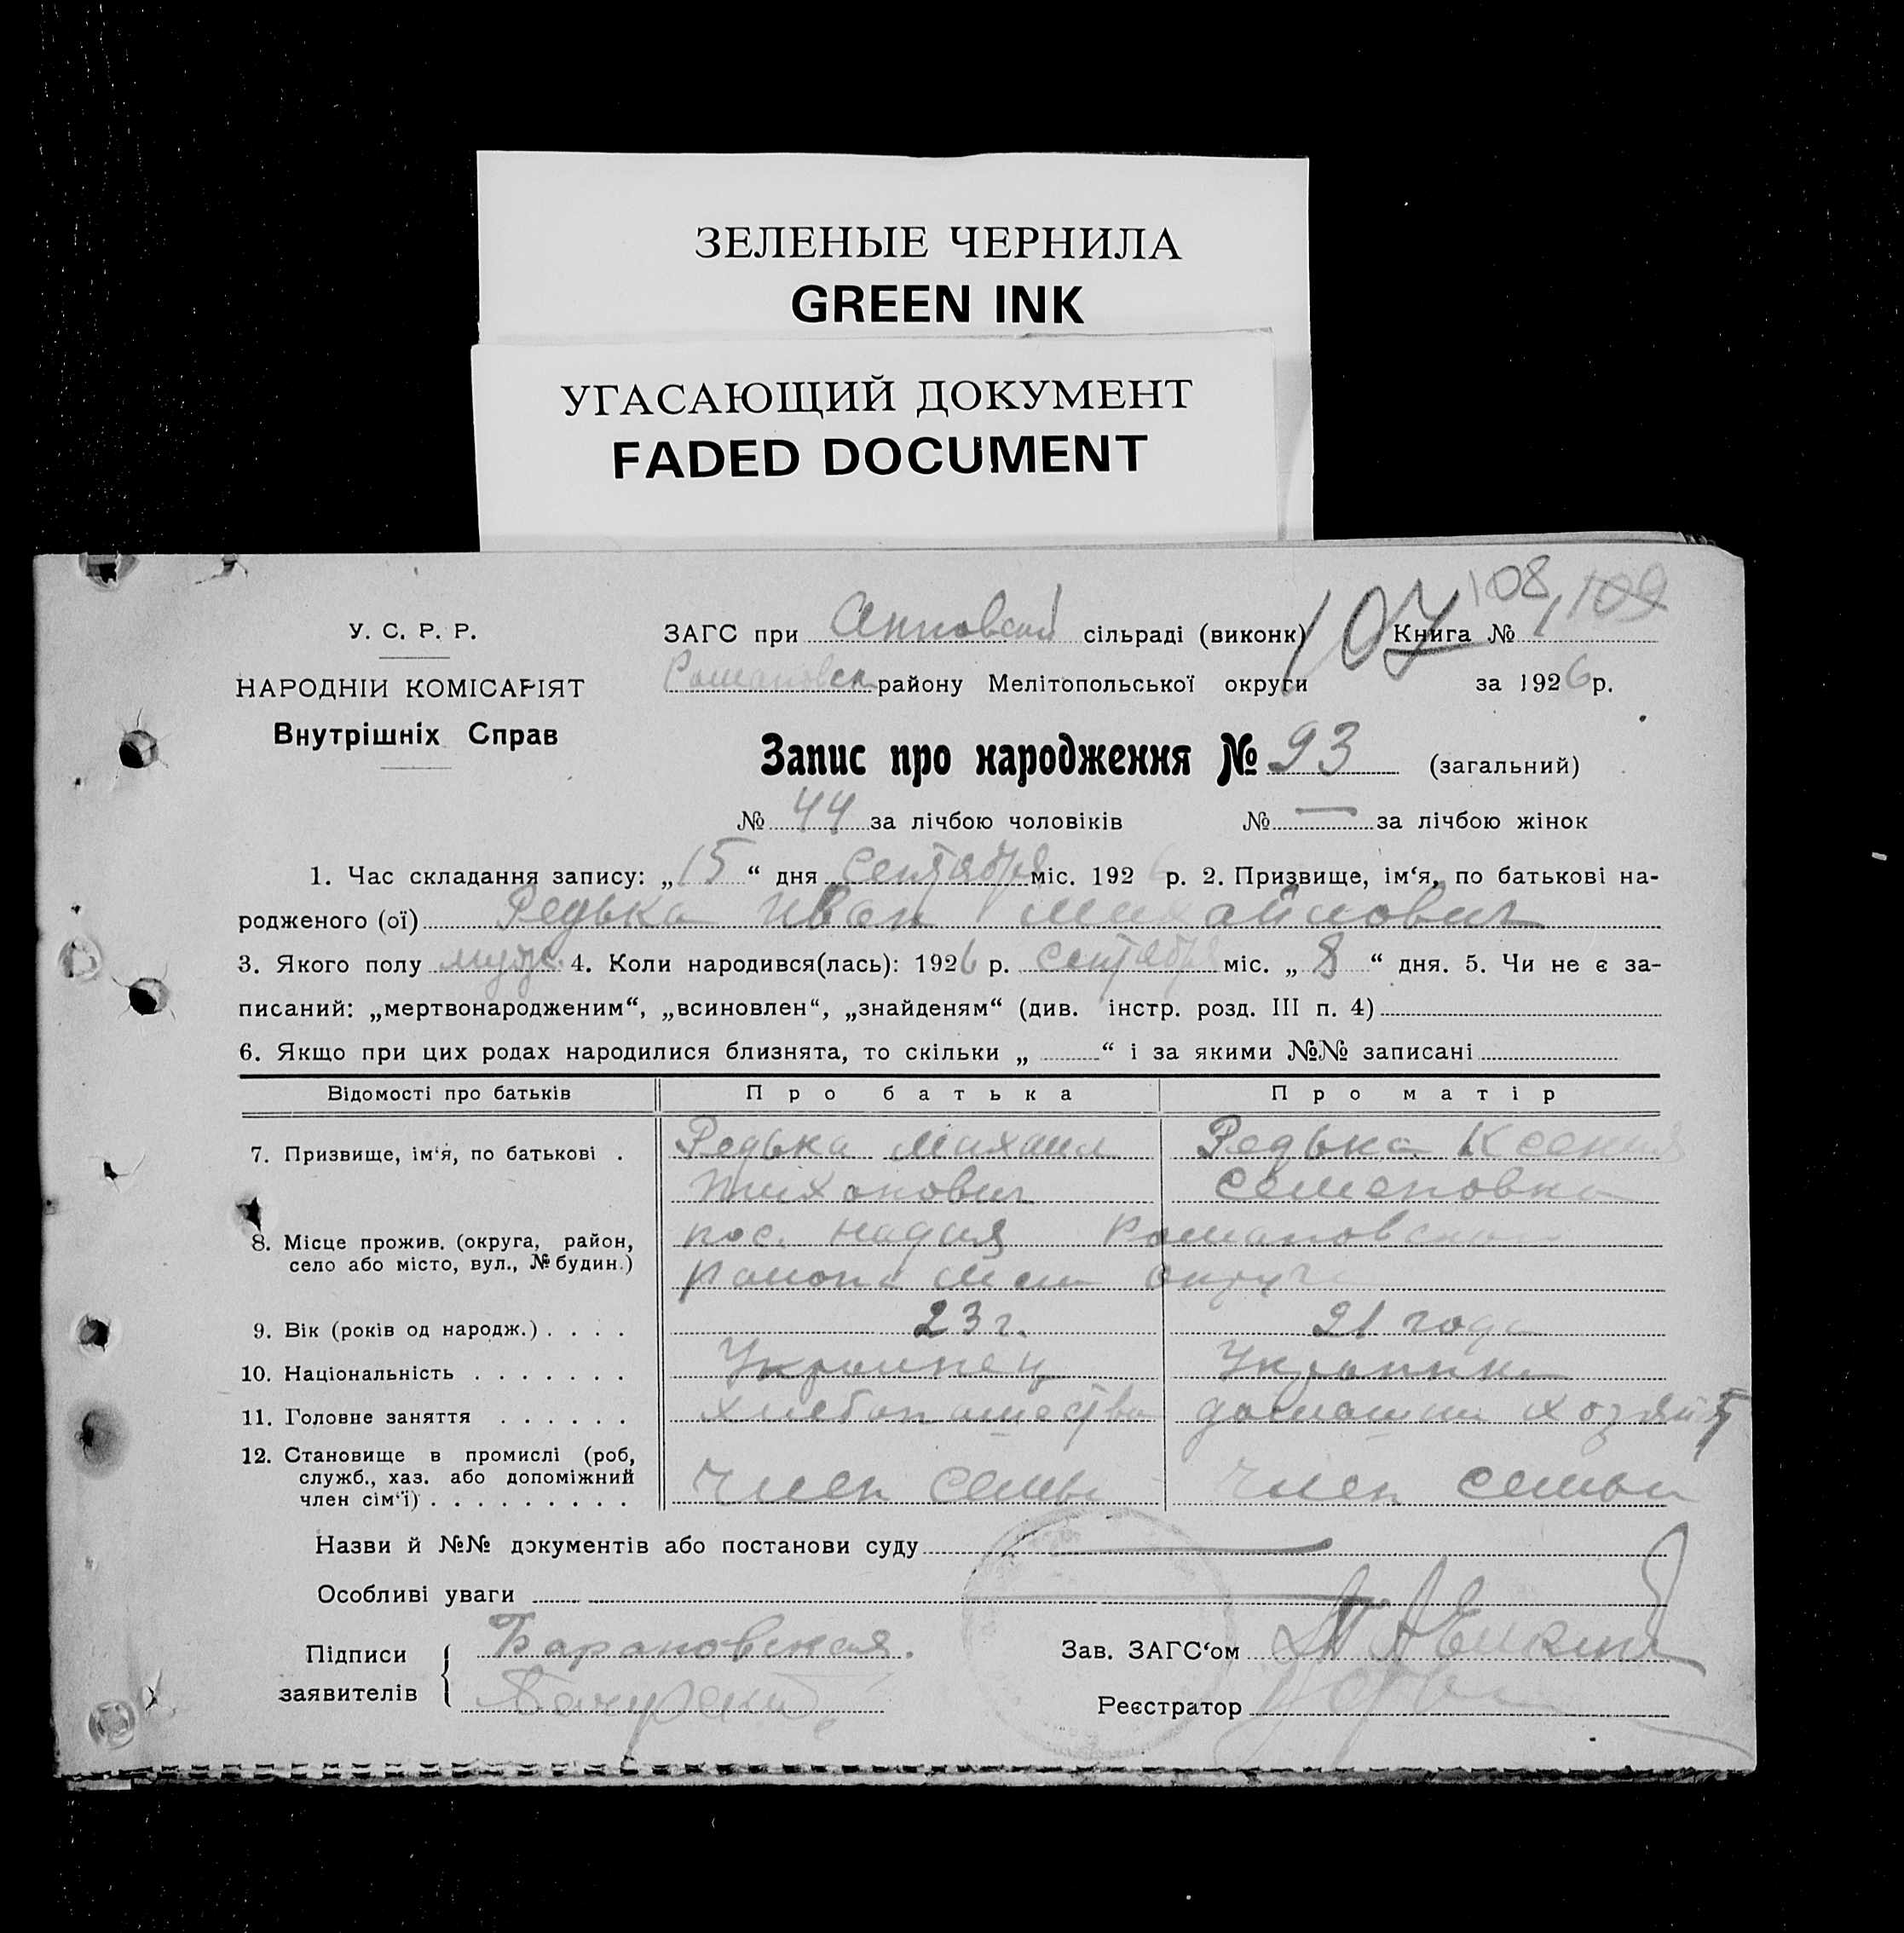 ЗЕЛЕНЫЕ ЧЕРНИЛА
GREEN INK
УГАСАЮЩИЙ ДОКУМЕНТ
FADED DOCUMENT
108 109
107
У. С. Р. Р.
НАРОДНІИ КОМІСАРІЯТ
Внутрішніх Справ
ЗАГС при Анновской сільраді (виконк) Книга № 1
Романовск району Мелітопольської округи за 1926 р.
Запис про народження № 93 (загальний)
№ 44 за лічбою чоловіків № — за лічбою жінок
1. Час складання запису: „15“ дня Сентября міс. 1926 р. 2. Призвище, ім‘я, по батькові на-
родженого (ої) Редька Иван Михайлович
3. Якого полу мужс. 4. Коли народився(лась): 1926 р. Сентября міс. „8“ дня. 5. Чи не є за-
писаний: „мертвонародженим“, „всиновлен“, „знайденям“ (див. інстр. розд. III п. 4)
6. Якщо при цих родах народилися близнята, то скільки „ “ і за якими №№ записані
Відомості про батьків Про батька Про матір
7. Призвище, ім‘я, по батькові . Редька Михаил Редька Ксения
Тихонович Семеновна
8. Місце прожив. (округа, район, село або місто, вул., № будин.) пос. Надия Романовского
района Мел округи
9. Вік (років од народж.) . . . . 23 г. 21 года
10. Національність . . . . . . . Украинец Украинка
11. Головне заняття . . . . . . хлебопашество домашни хозяйст
12. Становище в промислі (роб, служб., хаз. або допоміжний член сім‘ї) . . . . . . . . . Член семьи Член семьи
Назви й №№ документів або постанови суду
Особливі уваги
Підписи заявителів Барановская.
Зав. ЗАГС‘ом
Реєстратор